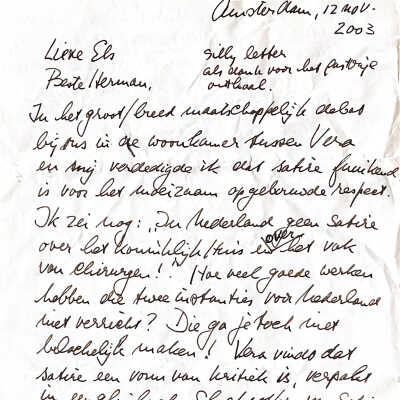 Amsterdam, 12 nov.
2003
Lieve Els
Beste Herman,
silly letter
als dank voor het feestje
onthaal.
In het groot/breed maatschappelijk debat
bij ons in de woonkamer tussen Vera
en mij verdedigde ik dat satire funikend
is voor het moeizaam opgebouwde respect.
Ik zei nog: "In Nederland geen satire
over het koninklijk huis en over het vak
van chirurgen!" Hoe veel goede werken
hebben die twee instanties voor Nederland
niet verricht? Die ga je toch niet
belachelijk maken! Vera vindt dat
satire een vorm van kritiek is, verpakt
in een